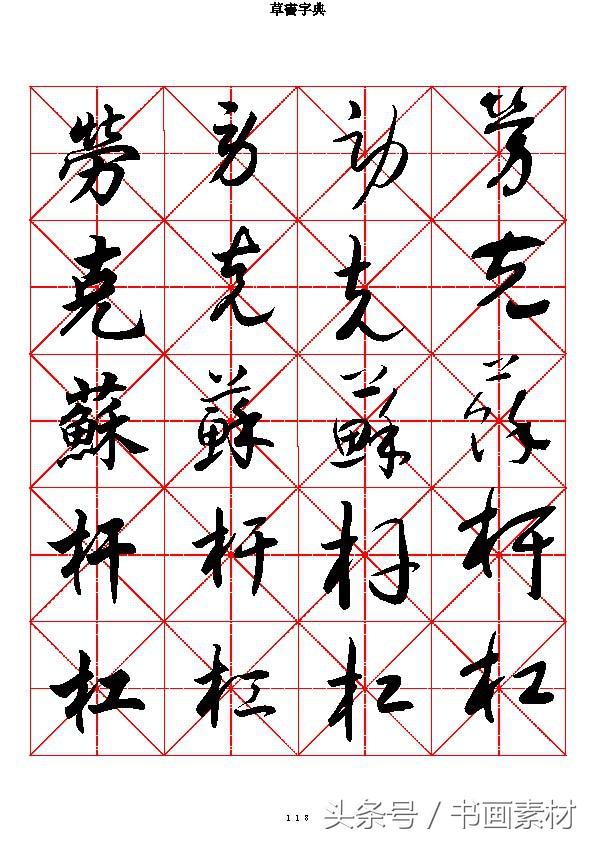 草書字典
勞 劳 劳 劳
克 克 克 克
蘇 蘇 蘇 蘇
杆 杆 杆 杆
杠 杠 杠 杠
118
头条号 / 书画素材